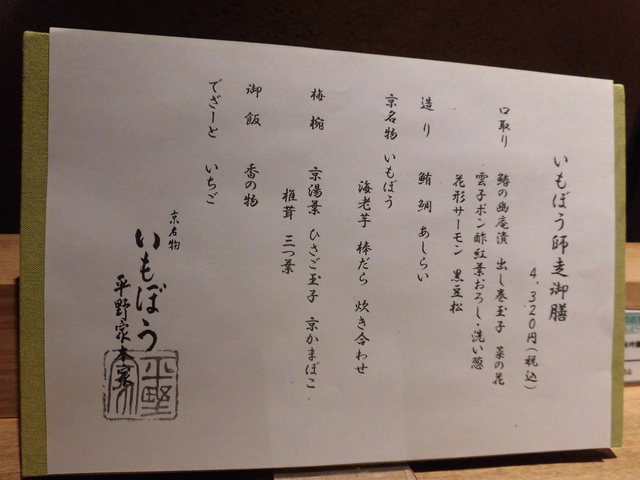 いもぼう師走御膳
4,320円(税込)
口取り 鰆の幽庵漬 出し巻玉子 菜の花
雲子ポン酢 紅葉おろし・洗い葱
花形サーモン 黒豆松
造り 鮪 鯛 あしらい
京名物 いもぼう
海老芋 棒だら 炊き合わせ
梅椀 京湯葉 ひさご玉子 京かまぼこ
椎茸 三つ葉
御飯 香の物
でざーと いちご
京名物
いもぼう
平野家本家
平野家